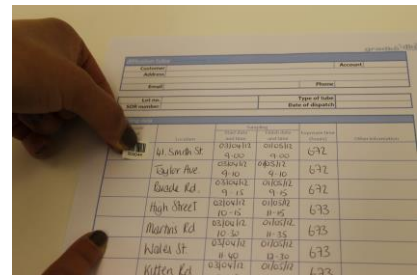 Diffusion Tubes
Customer
Account
Address
Email
Phone
Lot no.
Type of tube
SOR number
Date of dispatch
Location
Start date and time
Finish date and time
Exposure time (hours)
Other information
41. Smith St. 03/04/12 9-00 01/05/12 9-00 672
Taylor Ave. 03/04/12 9-10 01/05/12 9-10 672
Rd. 03/04/12 9-15 01/05/12 9-15 672
High Street 03/04/12 10-15 01/05/12 11-15 673
Martins Rd 03/04/12 10-30 01/05/12 11-35 673
Wales St. 03/04/12 11-40 01/05/12 12-30 673
Kitten Rd 03/04/12 01/05/12 673